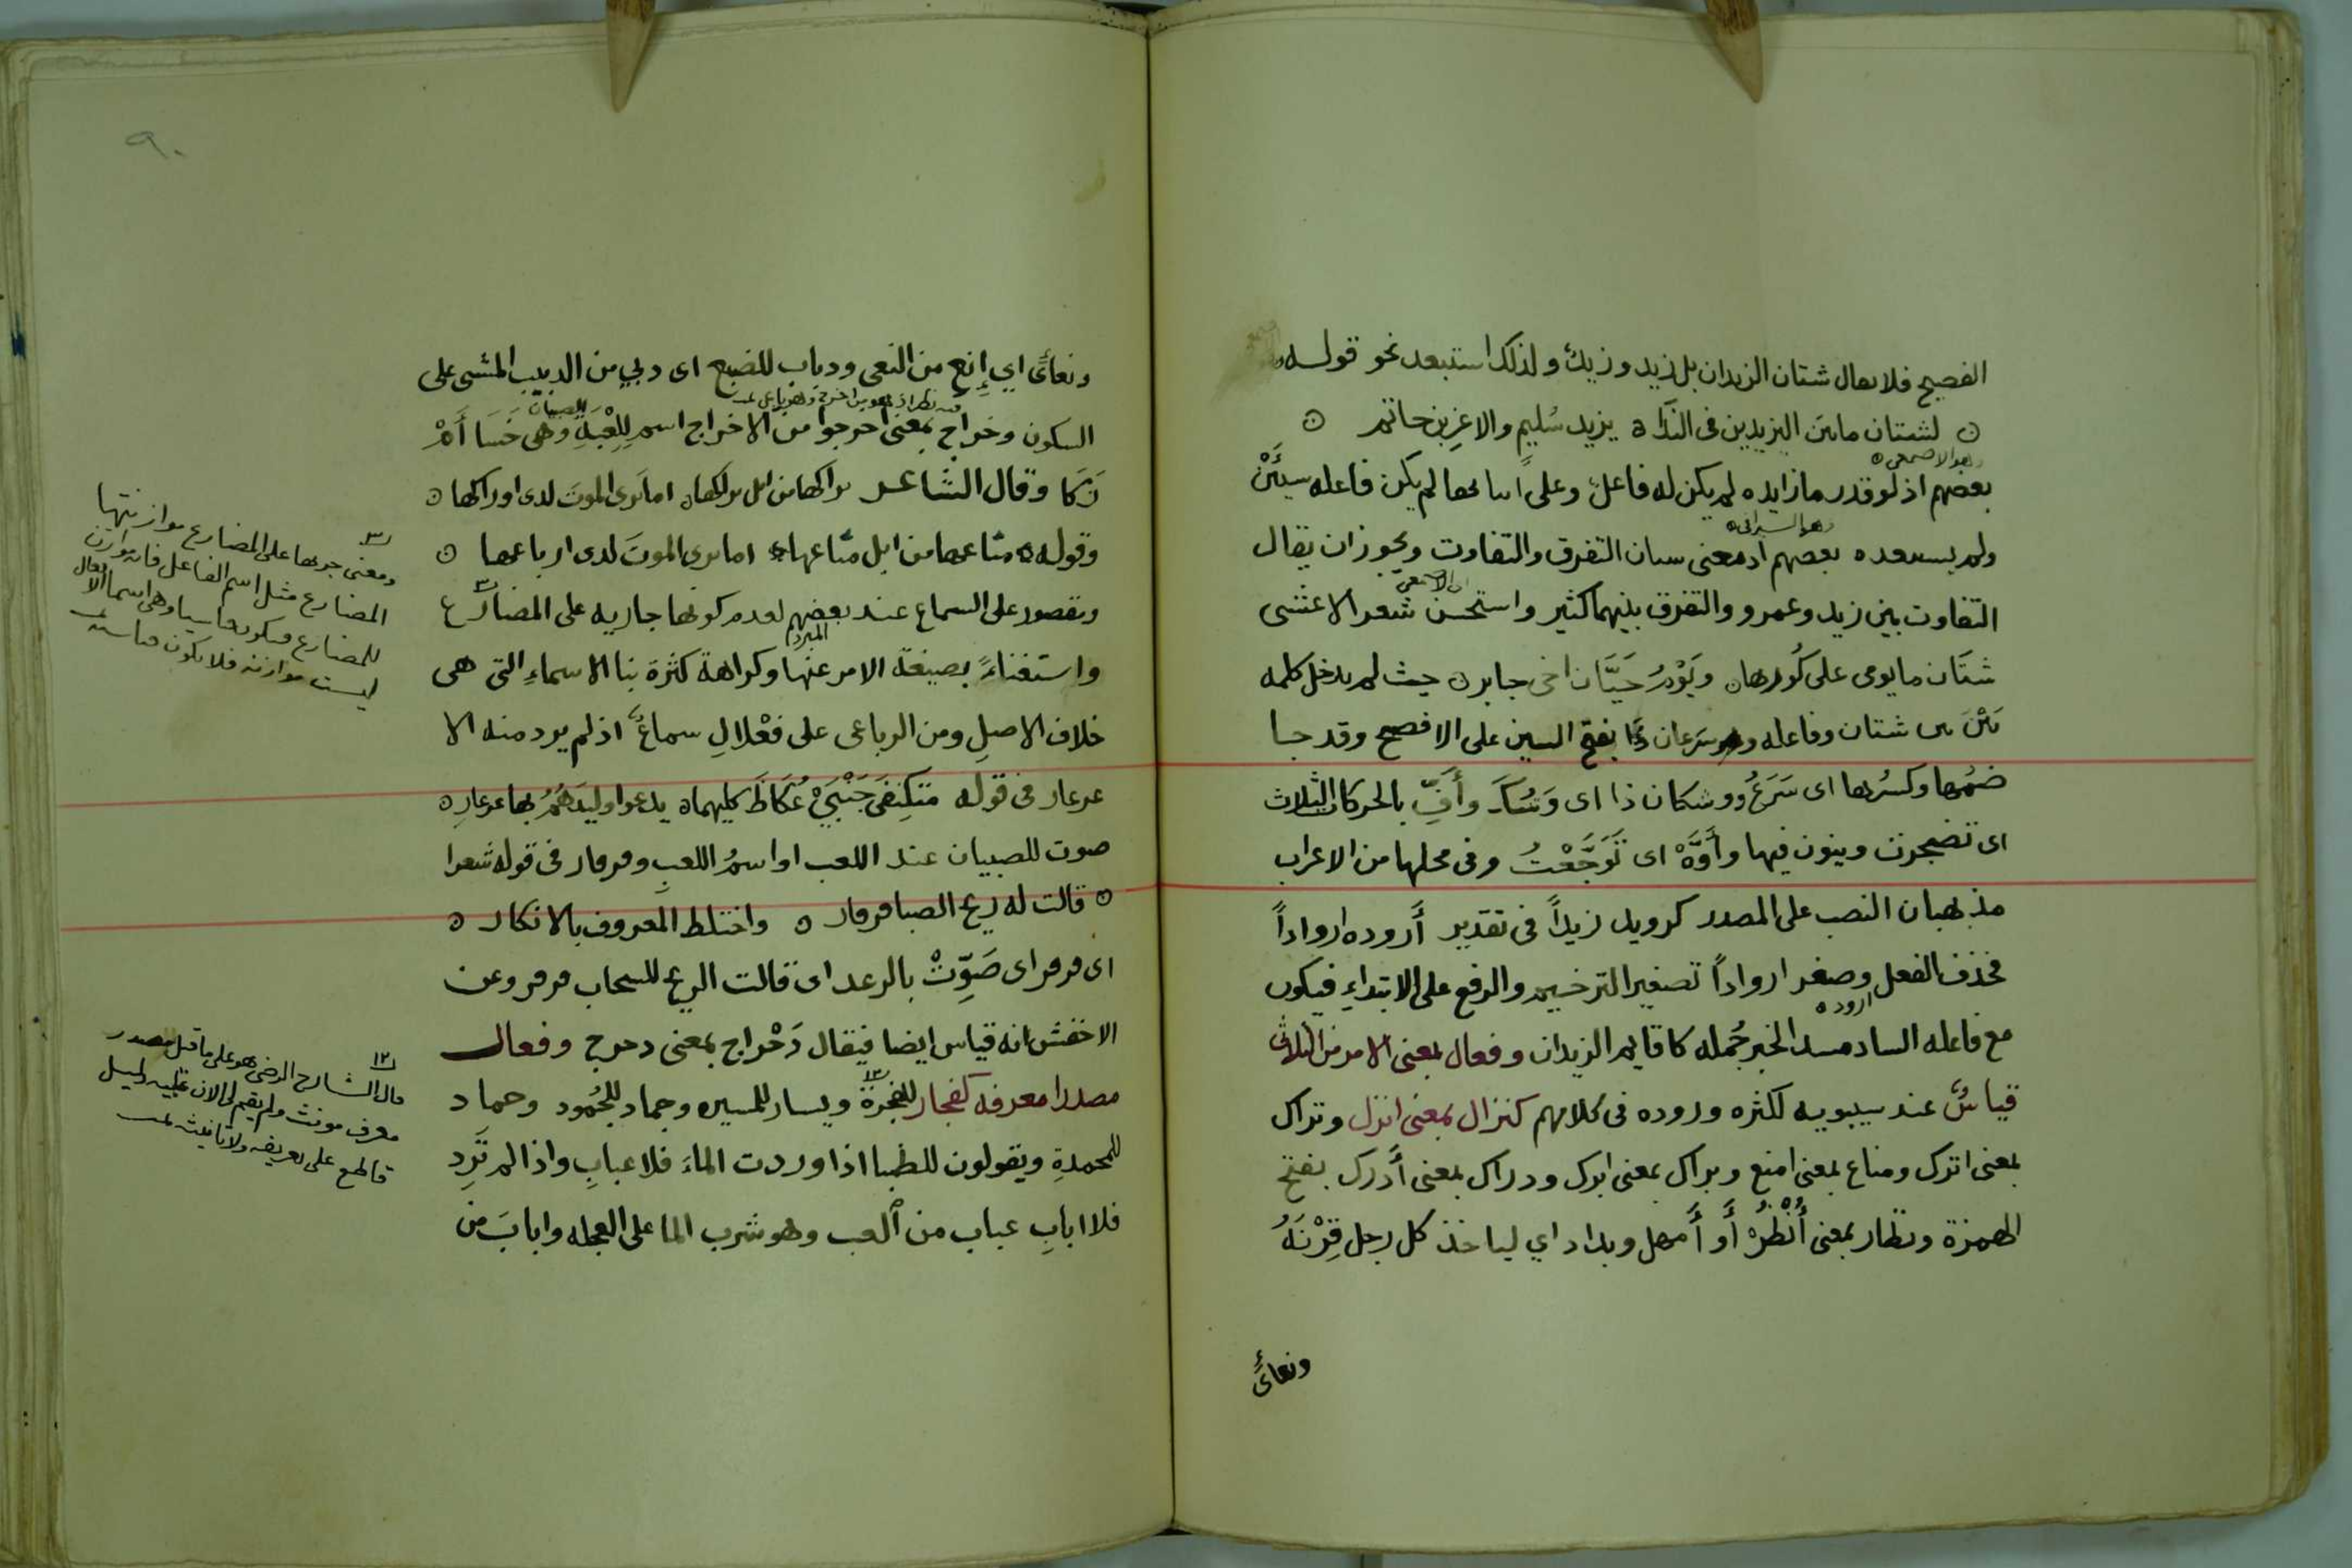 الفصيح فلا يعال شتان الزيدان بل زيد وزيد ولذلك استبعد نحو قوله
لشتان مابين اليزيدين فى الندا ه يزيد سُليم والاغر بن حاتم
وهو الاصمعى
بعضهم اذ لو قدر ما زايده لم يكن له فاعلٌ وعلى لم يكن فاعله سيئَيْن
وهو السيرافى
ولم يستبعده بعضهم اذ معنى ستان التفرق والتفاوت ويجوز ان يقال
اى الاصمعى
التفاوت بين زيد وعمرو والتفرق بينهما كثير واستحسن شعر الاعشى
شتان ما يومى على كُورها ويَوْمُ حَيَّان اخى جابر حيث لم يدخل كلمه
بَيْنَ بين شتان وفاعله وسرعان ذا بفتح السين على الافصح وقد جا
ضمُها وكسرُها اى سَرُعَ ووشكان ذا اى وَشُكَ وأُفِّ بالحركات الثلاث
اى تضجرت وينون فيها وأَوَّهْ اى تَوَجَّعْتُ وفى محلها من الاعراب
مذهبان النصب على المصدر كرويد زيداً فى تقدير أَروده ارواداً
فحذف الفعل وصغر ارواداً تصغير الترخيم والرفع على الابتداءِ فيكون
اروده
مع فاعله الساد مسد الخبر جُمله كاقايم الزيدان وفعال بمعنى الامر من الثلاثى
قياسٌ عند سيبويه لكثره وروده فى كلامهم كنزال بمعنى انزل وتراك
بمعنى اترك ومناع بمعنى امنع وبراك بمعنى ابرك ودراك بمعنى أَدرك بفتح
الهمزة ونظار بمعنى أُنْظُرْ أَو أَمهل وبداد اي لياخذ كل رجل قِرْنَهُ
ونعاىِ
٩٠
ونعاىِ اي إِنع من النعى ودباب للضبع اى دبي من الدبيب المشى على
للصبيان
السكون وخراج بمعنى اخرجوا من الاخراج اسم لِلُعْبَةِ وهى خَسَا أَمْ
زَكَا وقال الشاعر تراكها من ابل تراكها اما ترى الموتَ لدى اوراكها
وقوله مناعها من ابل مناعها اما ترى الموتَ لدى ارباعها
ومقصور على السماع عند بعضهم لعدم كونها جاريه على المضارع
المبرد
واستغناءً بصيغة الامر عنها وكراهة كثرة بنا الاسماءِ التى هى
خلاف الاصلِ ومن الرباعى على فَعْلالِ سماعٌ اذ لم يرد منه الا
عرعار فى قوله متكنِفَى جَنْبَيْ عُكَاظَ كليهما يدعوا وليدَهُمُ بها عرعارِ
صوت للصبيان عند اللعب او اسمُ اللعبِ وقرقار فى قوله شعرا
قالت له ريح الصبا قرقار واختلط المعروف بالانكار
اى قرقر اى صَوِّتْ بالرعد اى قالت الريح للسحاب قرقر وعن
الاخفش انه قياس ايضا فيقال دَحْراج بمعنى دحرج وفعال
مصدرا معرفه كفجار للفجرة ويسار للميسره وجماد للجُمود وحماد
للمحمدةِ ويقولون للظبا اذا وردت الماءَ فلا عبابِ واذا لم تَرِد
فلا ابابِ عباب من العب وهو شرب الما على العجله وابابَ من
ومعنى جريها على المضارع موازنتها
المضارع مثل اسم الفاعل فانه يوازن
للمضارع فيكون قياسيا وهى اسما الافعال
ليست موازنه فلا يكون قياسيه
قال الشارح الرضى هو على ما قيل مصدر
معرف مونث ولم يقم لى الان عليه دليل
قاطع على تعريفه ولا تانيثه